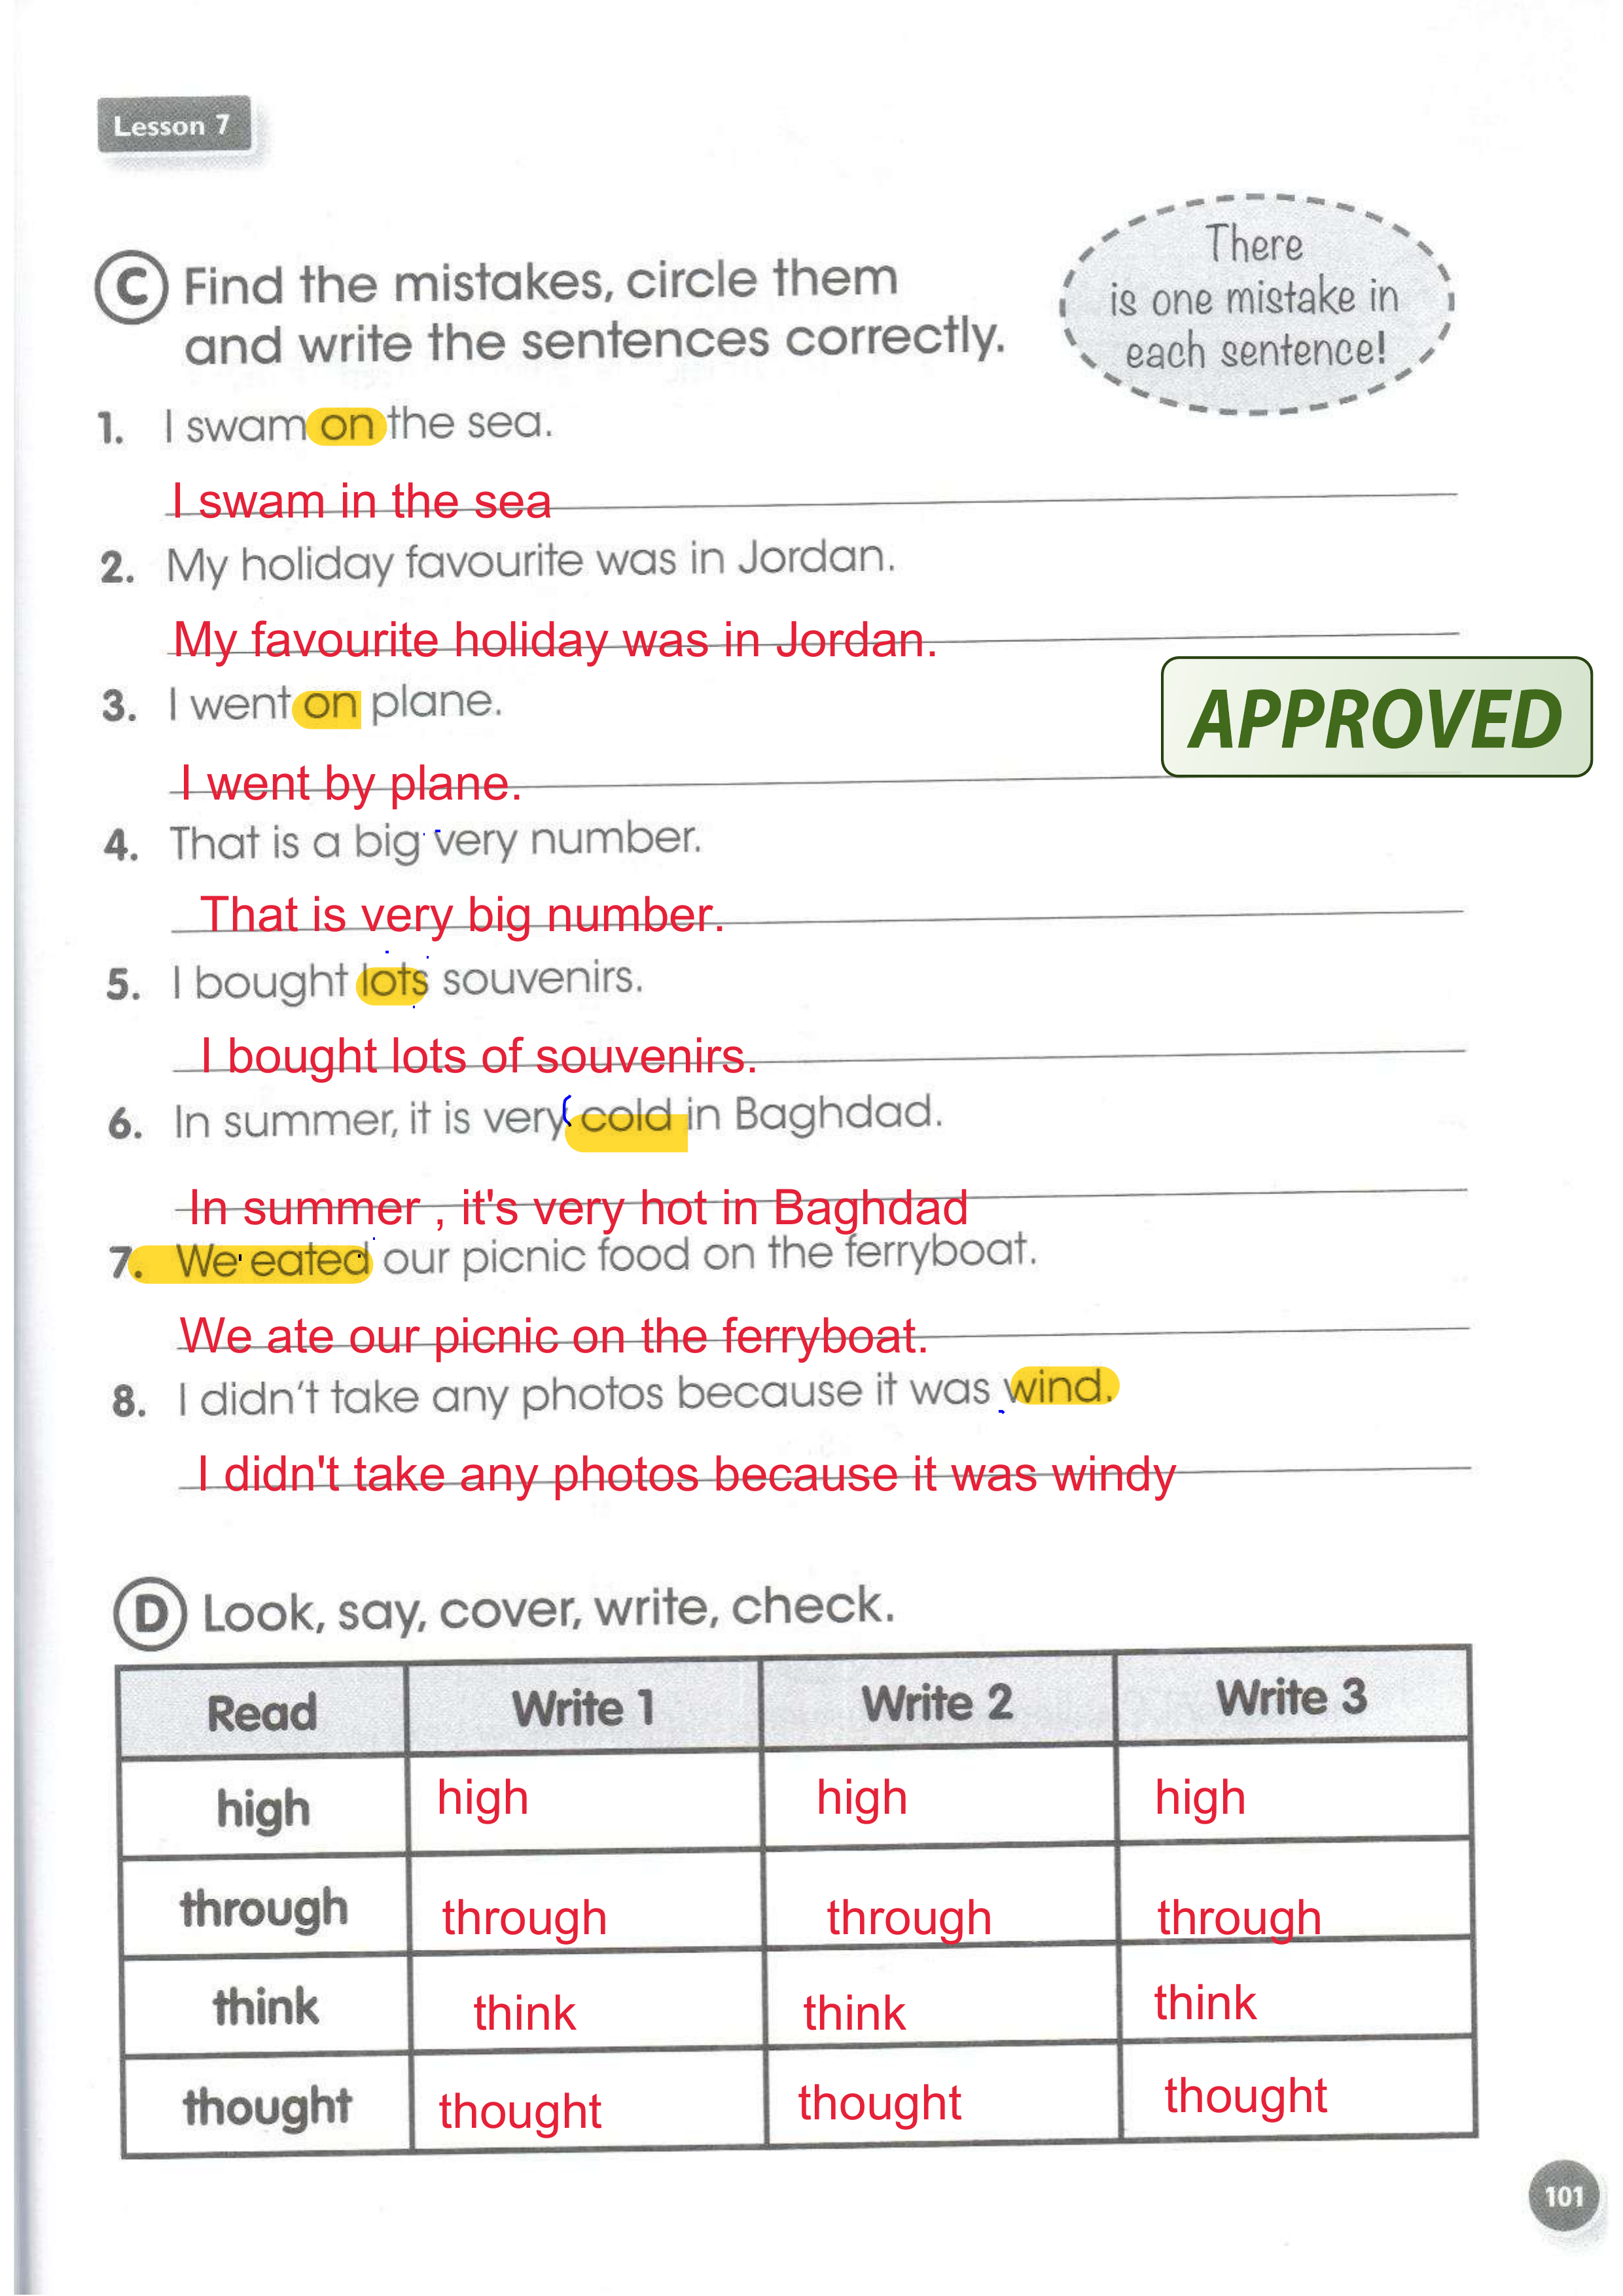 Lesson 7
There
is one mistake in
each sentence!
C Find the mistakes, circle them
and write the sentences correctly.
1. I swam on the sea.
I swam in the sea
2. My holiday favourite was in Jordan.
My favourite holiday was in Jordan.
3. I went on plane.
APPROVED
I went by plane.
4. That is a big very number.
That is very big number.
5. I bought lots souvenirs.
I bought lots of souvenirs.
6. In summer, it is very cold in Baghdad.
In summer , it's very hot in Baghdad
7. We eated our picnic food on the ferryboat.
We ate our picnic on the ferryboat.
8. I didn't take any photos because it was wind.
I didn't take any photos because it was windy
D Look, say, cover, write, check.
Read Write 1 Write 2 Write 3
high high high high
through through through through
think think think think
thought thought thought thought
101